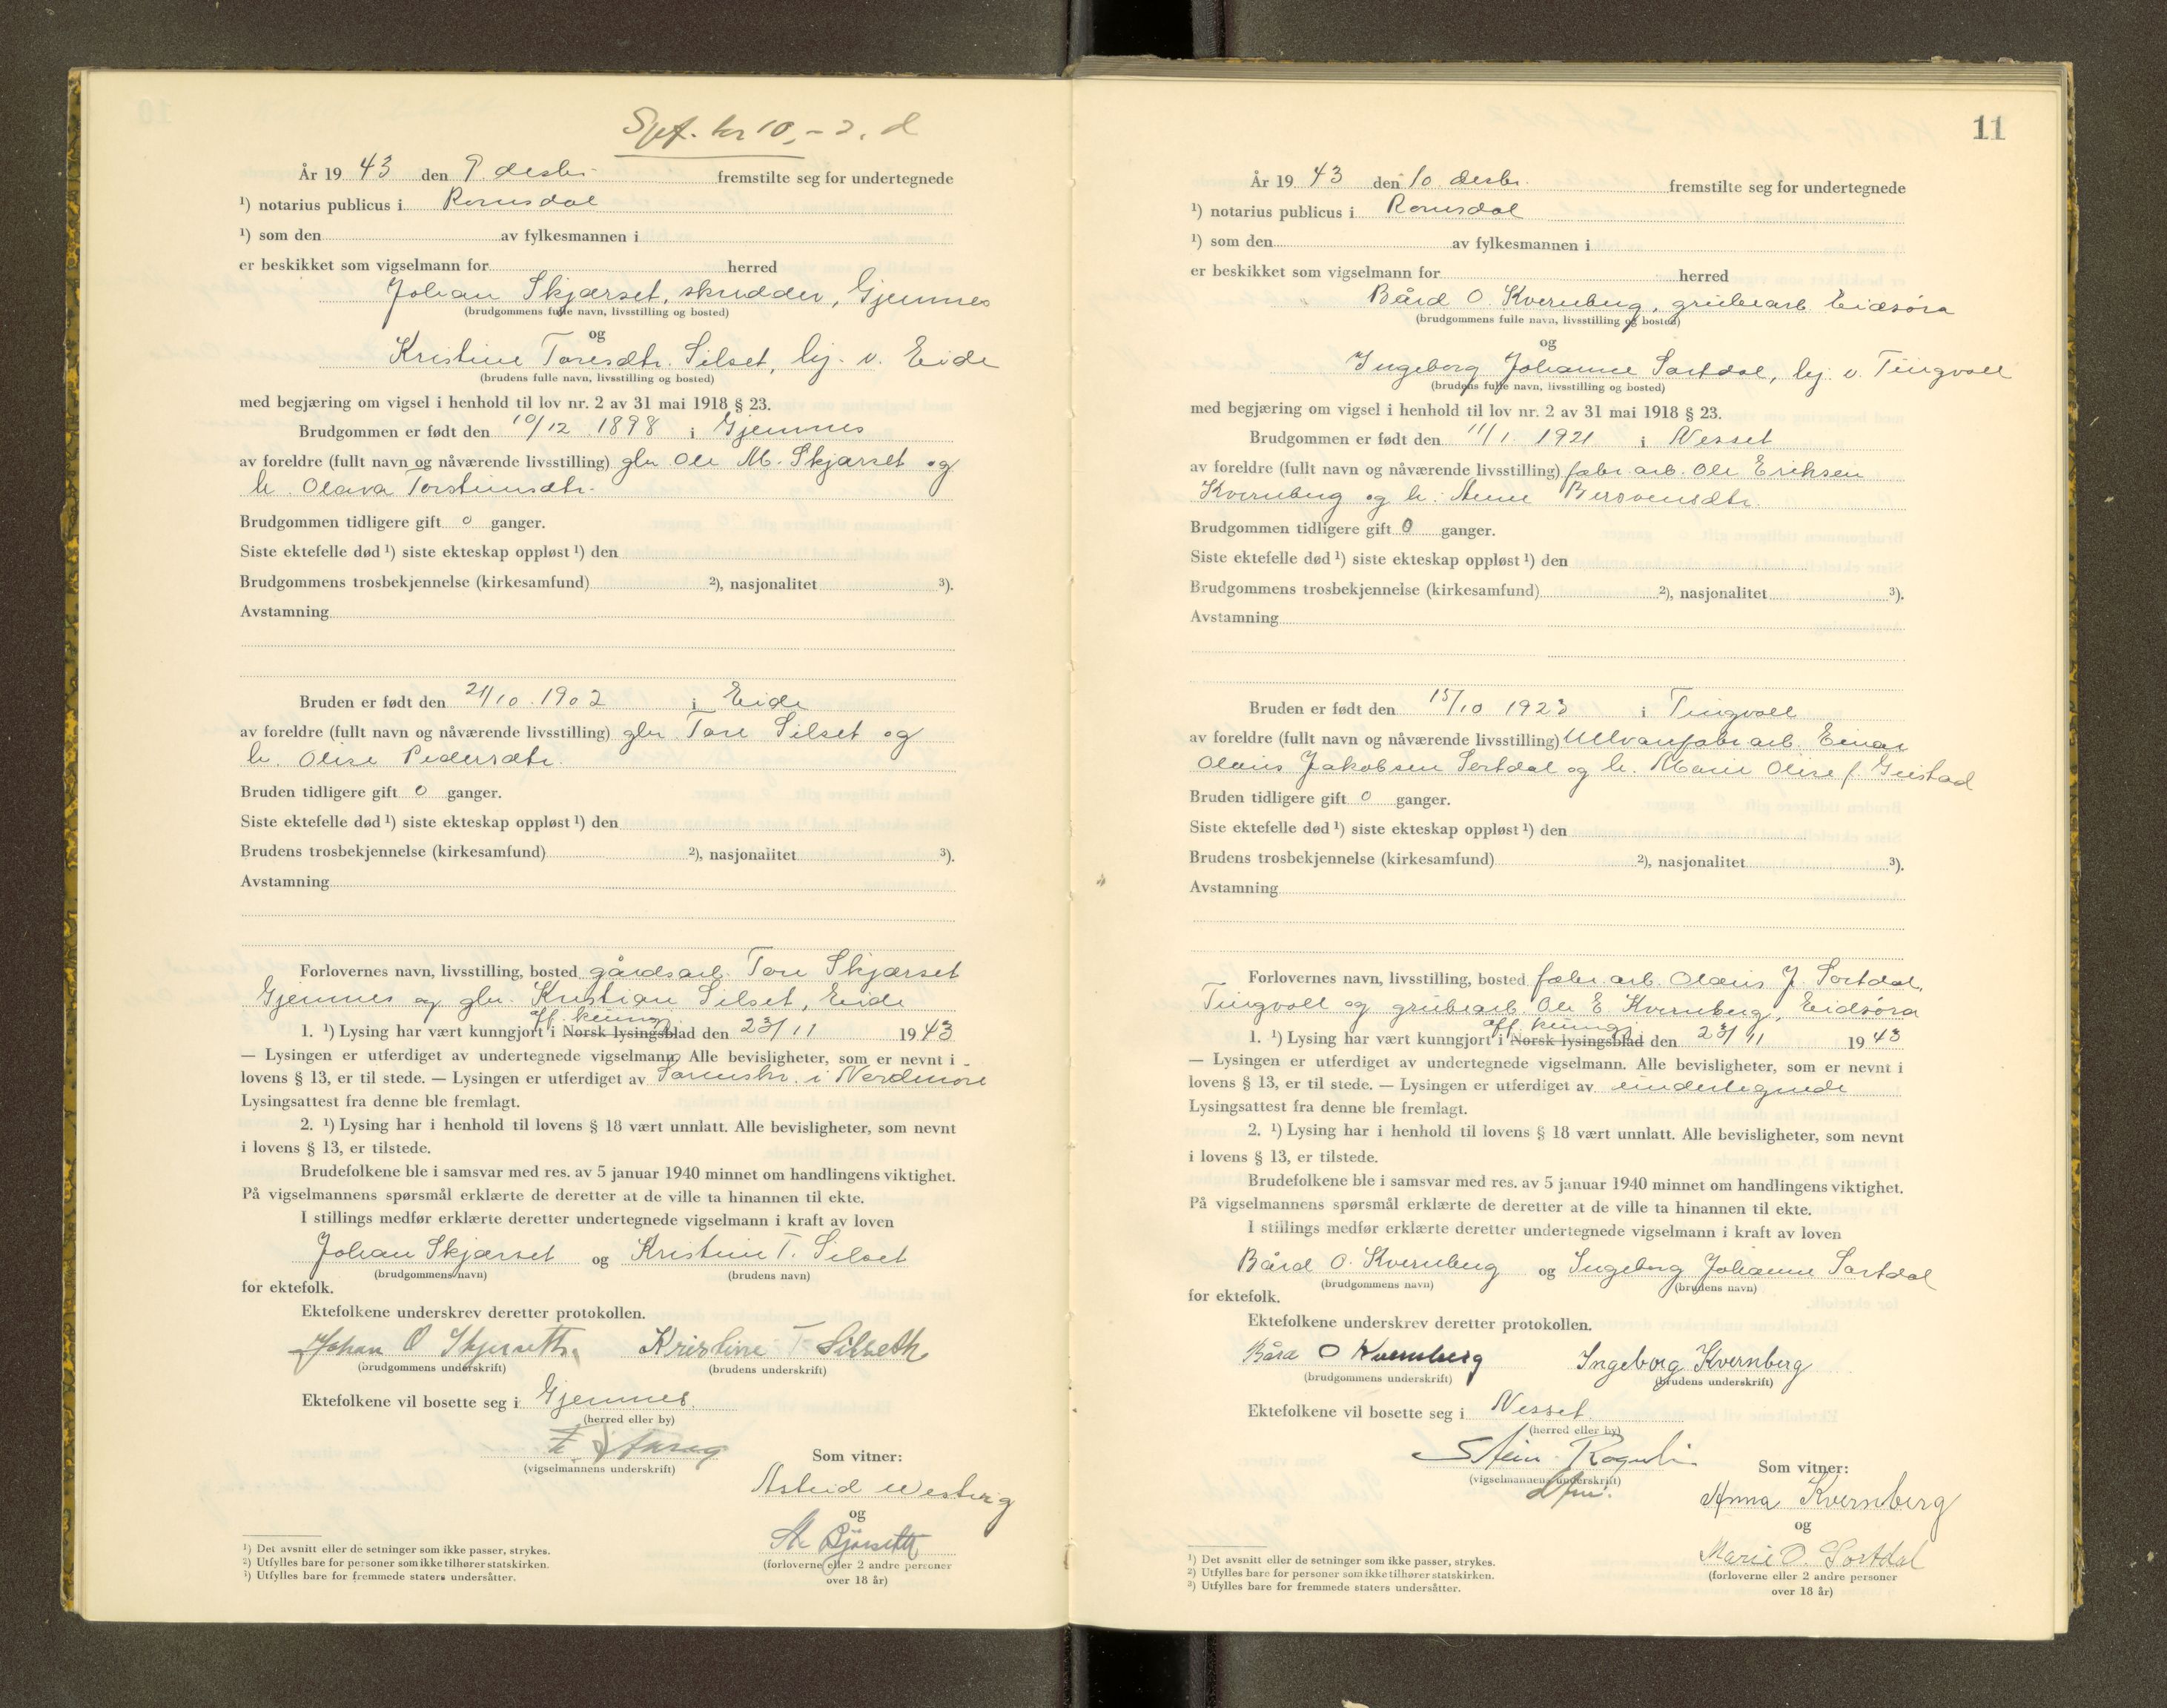 kr 10,-
År 19 43 den 9. desbr. fremstilte seg for undertegnede
¹) notarius publicus i Romsdal
¹) som den av fylkesmannen i
er beskikket som vigselmann for herred
Johan Skjærset, skredder, Gjemnes
(brudgommens fulle navn, livsstilling og bosted)
og
Kristine Toresdtr. Silset, hj. v. Eide
(brudens fulle navn, livsstilling og bosted)
med begjæring om vigsel i henhold til lov nr. 2 av 31 mai 1918 § 23.
Brudgommen er født den 10/12 1898 i Gjemnes
av foreldre (fullt navn og nåværende livsstilling) gbr Ole M. Skjærset og
h. Olava Torsteinsdtr.
Brudgommen tidligere gift 0 ganger.
Siste ektefelle død ¹) siste ekteskap oppløst ¹) den
Brudgommens trosbekjennelse (kirkesamfund) ²), nasjonalitet ³).
Avstamning
Bruden er født den 21/10 1902 i Eide
av foreldre (fullt navn og nåværende livsstilling) gbr Tore Silset og
h. Olise Pedersdtr.
Bruden tidligere gift 0 ganger.
Siste ektefelle død ¹) siste ekteskap oppløst ¹) den
Brudens trosbekjennelse (kirkesamfund) ²), nasjonalitet ³).
Avstamning
Forlovernes navn, livsstilling, bosted gårdsarb. Tore Skjærset
Gjemnes og gbr. Kristian Silset, Eide
off. kunngj.
1. ¹) Lysing har vært kunngjort i Norsk lysingsblad den 23/11 1943
— Lysingen er utferdiget av undertegnede vigselmann. Alle bevisligheter, som er nevnt i
lovens § 13, er til stede. — Lysingen er utferdiget av Sorenskr. i Nordmøre
Lysingsattest fra denne ble fremlagt.
2. ¹) Lysing har i henhold til lovens § 18 vært unnlatt. Alle bevisligheter, som nevnt
i lovens § 13, er tilstede.
Brudefolkene ble i samsvar med res. av 5 januar 1940 minnet om handlingens viktighet.
På vigselmannens spørsmål erklærte de deretter at de ville ta hinannen til ekte.
I stillings medfør erklærte deretter undertegnede vigselmann i kraft av loven
Johan Skjærset og Kristine T. Silset
(brudgommens navn) (brudens navn)
for ektefolk.
Ektefolkene underskrev deretter protokollen.
Johan O Skjerseth Kristine T Silseth
(brudgommens underskrift) (brudens underskrift)
Ektefolkene vil bosette seg i Gjemnes.
(herred eller by)
(vigselmannens underskrift) Som vitner:
Astrid Westvig
og
(forloverne eller 2 andre personer
over 18 år)
¹) Det avsnitt eller de setninger som ikke passer, strykes.
²) Utfylles bare for personer som ikke tilhører statskirken.
³) Utfylles bare for fremmede staters undersåtter.
11
År 19 43 den 10. desbr. fremstilte seg for undertegnede
¹) notarius publicus i Romsdal
¹) som den av fylkesmannen i
er beskikket som vigselmann for herred
Bård O. Kvernberg, grubearb. Eidsøra
(brudgommens fulle navn, livsstilling og bosted)
og
Ingeborg Johanne Sortdal, hj. v. Tingvoll
(brudens fulle navn, livsstilling og bosted)
med begjæring om vigsel i henhold til lov nr. 2 av 31 mai 1918 § 23.
Brudgommen er født den 11/1 1921 i Nesset
av foreldre (fullt navn og nåværende livsstilling) fabr. arb. Ole Eriksen
Kvernberg og h. Anne Bersvensdtr.
Brudgommen tidligere gift 0 ganger.
Siste ektefelle død ¹) siste ekteskap oppløst ¹) den
Brudgommens trosbekjennelse (kirkesamfund) ²), nasjonalitet ³).
Avstamning
Bruden er født den 15/10 1923 i Tingvoll
av foreldre (fullt navn og nåværende livsstilling) Ullvarefabr arb. Einar
Olaus Jakobsen Sortdal og h. Marie Olise f.
Bruden tidligere gift 0 ganger.
Siste ektefelle død ¹) siste ekteskap oppløst ¹) den
Brudens trosbekjennelse (kirkesamfund) ²), nasjonalitet ³).
Avstamning
Forlovernes navn, livsstilling, bosted fabr arb. Olaus J. Sortdal,
Tingvoll og grubearb. Ole E. Kvernberg, Eidsøra
off. kunngj.
1. ¹) Lysing har vært kunngjort i Norsk lysingsblad den 23/11 1943
— Lysingen er utferdiget av undertegnede vigselmann. Alle bevisligheter, som er nevnt i
lovens § 13, er til stede. — Lysingen er utferdiget av undertegnede
Lysingsattest fra denne ble fremlagt.
2. ¹) Lysing har i henhold til lovens § 18 vært unnlatt. Alle bevisligheter, som nevnt
i lovens § 13, er tilstede.
Brudefolkene ble i samsvar med res. av 5 januar 1940 minnet om handlingens viktighet.
På vigselmannens spørsmål erklærte de deretter at de ville ta hinannen til ekte.
I stillings medfør erklærte deretter undertegnede vigselmann i kraft av loven
Bård O. Kvernberg og Ingeborg Johanne Sortdal
(brudgommens navn) (brudens navn)
for ektefolk.
Ektefolkene underskrev deretter protokollen.
Bård O Kvernberg Ingeborg Kvernberg
(brudgommens underskrift) (brudens underskrift)
Ektefolkene vil bosette seg i Nesset.
(herred eller by)
Stein Rognlien
(vigselmannens underskrift) Som vitner:
Anna Kvernberg
og
Marie O. Sortdal
(forloverne eller 2 andre personer
over 18 år)
¹) Det avsnitt eller de setninger som ikke passer, strykes.
²) Utfylles bare for personer som ikke tilhører statskirken.
³) Utfylles bare for fremmede staters undersåtter.